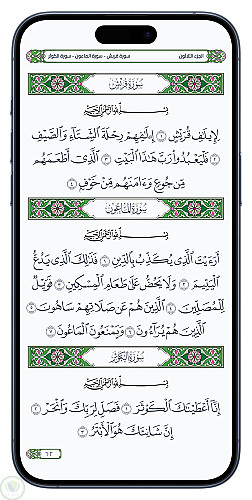 الجزء الثلاثون
سورة قريش - سورة الماعون - سورة الكوثر
سُورَةُ قُرَيْشٍ
بِسْمِ ٱللَّهِ ٱلرَّحْمَٰنِ ٱلرَّحِيمِ
لِإِيلَٰفِ قُرَيْشٍ ١ إِۦلَٰفِهِمْ رِحْلَةَ ٱلشِّتَآءِ وَٱلصَّيْفِ
٢ فَلْيَعْبُدُوا۟ رَبَّ هَٰذَا ٱلْبَيْتِ ٣ ٱلَّذِىٓ أَطْعَمَهُم
مِّن جُوعٍ وَءَامَنَهُم مِّنْ خَوْفٍ ٤
سُورَةُ المَاعُونِ
بِسْمِ ٱللَّهِ ٱلرَّحْمَٰنِ ٱلرَّحِيمِ
أَرَءَيْتَ ٱلَّذِى يُكَذِّبُ بِٱلدِّينِ ١ فَذَٰلِكَ ٱلَّذِى يَدُعُّ
ٱلْيَتِيمَ ٢ وَلَا يَحُضُّ عَلَىٰ طَعَامِ ٱلْمِسْكِينِ ٣ فَوَيْلٌ
لِّلْمُصَلِّينَ ٤ ٱلَّذِينَ هُمْ عَن صَلَاتِهِمْ سَاهُونَ ٥
ٱلَّذِينَ هُمْ يُرَآءُونَ ٦ وَيَمْنَعُونَ ٱلْمَاعُونَ ٧
سُورَةُ الكَوْثَرِ
بِسْمِ ٱللَّهِ ٱلرَّحْمَٰنِ ٱلرَّحِيمِ
إِنَّآ أَعْطَيْنَٰكَ ٱلْكَوْثَرَ ١ فَصَلِّ لِرَبِّكَ وَٱنْحَرْ ٢
إِنَّ شَانِئَكَ هُوَ ٱلْأَبْتَرُ ٣
٦٠٢